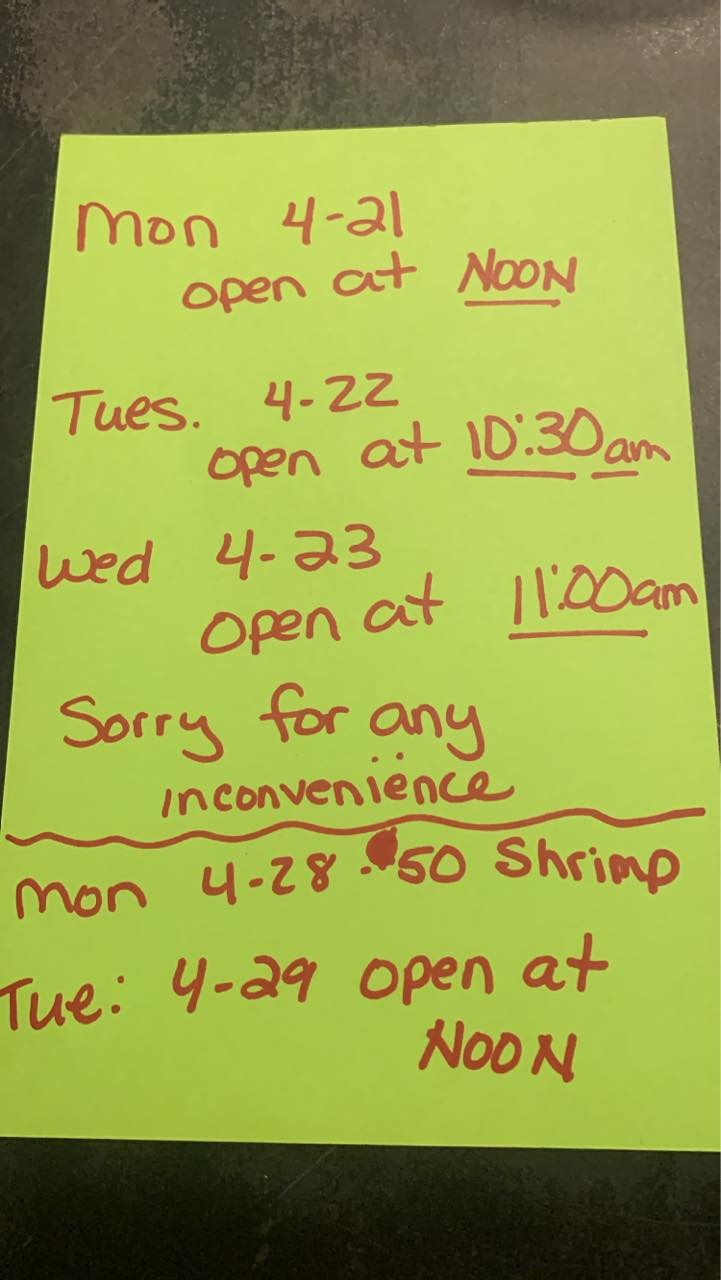 Mon 4-21
open at NOON
Tues. 4-22
open at 10:30am
Wed 4-23
open at 11:00am
Sorry for any
inconvenience
Mon 4-28 .50 Shrimp
Tue: 4-29 open at
NOON